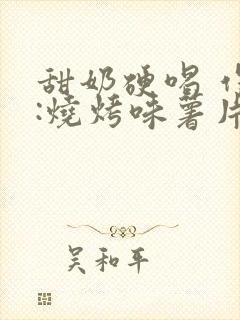 甜奶硬唱
:燒烤味薯片
吴和平